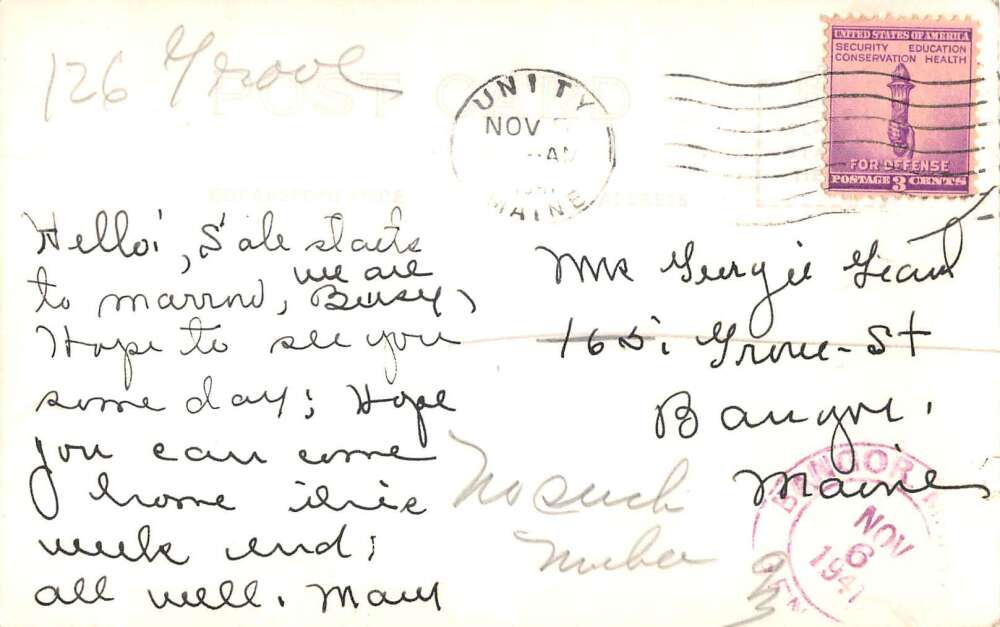 126 Grove
POST CARD
UNITY
NOV
AM
MAINE
UNITED STATES OF AMERICA
SECURITY EDUCATION
CONSERVATION HEALTH
FOR DEFENSE
POSTAGE 3 CENTS
CORRESPONDENCE ADDRESS
Hello! Sale starts
to marrow, we are Busy,
Hope to see you
some day; Hope
you can come
home this
week end;
all well. Mary
Mrs Georgie Grant
165; Grove-St
Bangor.
Maine
No such
Number
BANGOR
NOV
6
1941